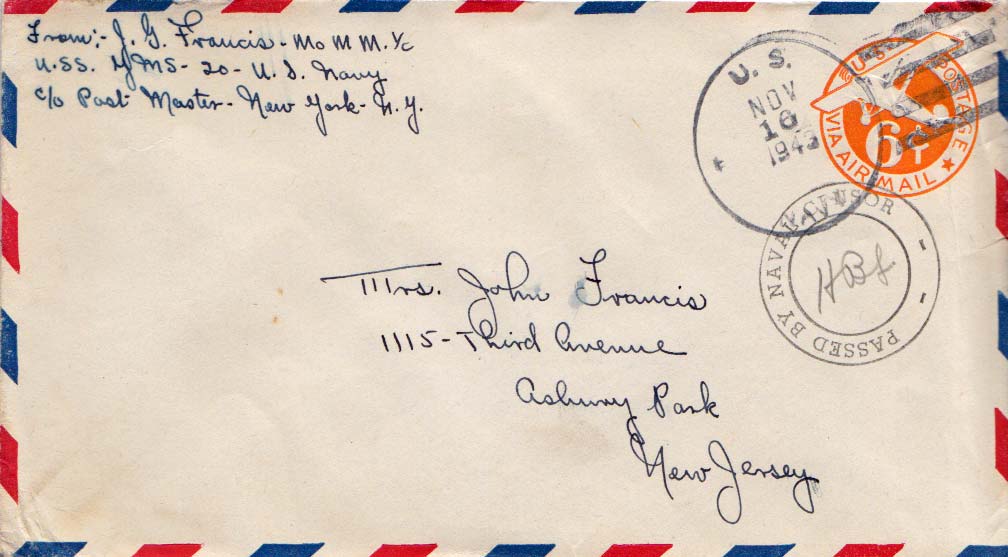 From:- J. G. Francis - Mo M M. 1/c
U.S.S. YMS-20- U. S. Navy
c/o Post Master - New York - N.Y.
U. S.
NOV
16
1943
U.S. POSTAGE
6¢
VIA AIR MAIL
PASSED BY NAVAL CENSOR
Mrs. John Francis
1115-Third Avenue
Asbury Park
New Jersey